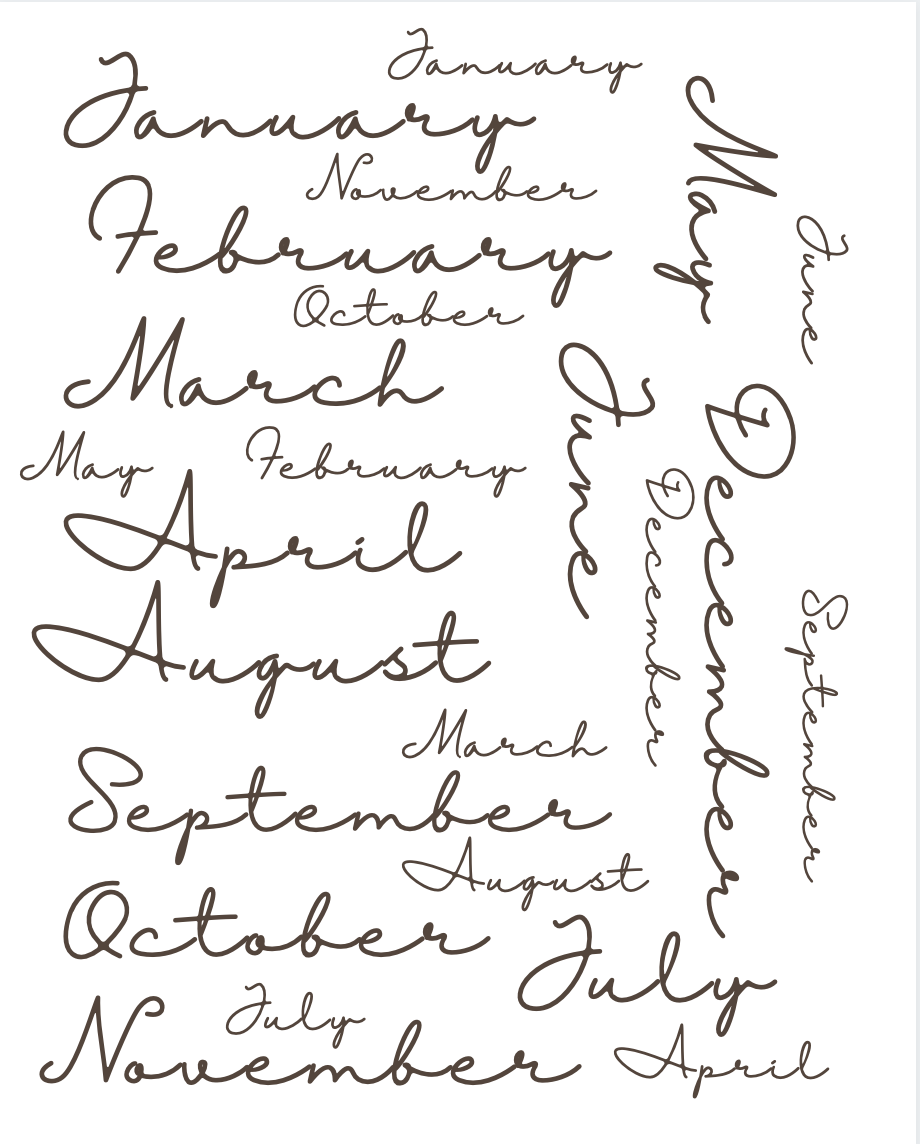 January
January
November
February
October
March
May
February
April
August
March
September
August
October
July
November
July
April
May
June
June
December
December
September